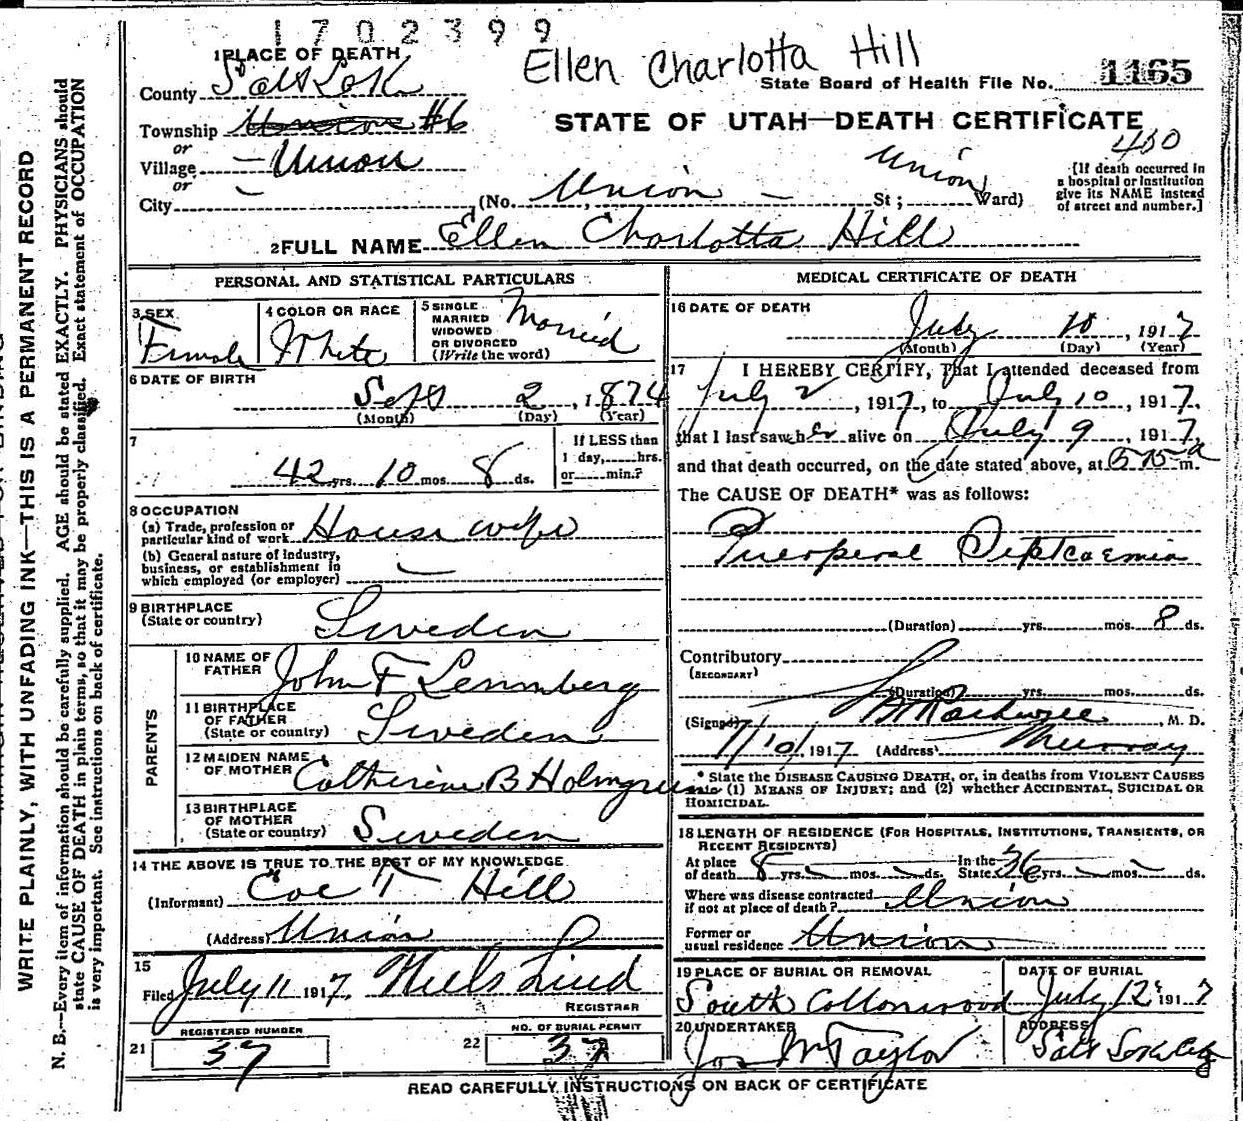 1702399
Ellen Charlotta Hill
1 PLACE OF DEATH
State Board of Health File No. 1165
County Salt Lake
STATE OF UTAH—DEATH CERTIFICATE
Township Union #6
450
or
Village Union
Union
[If death occurred in
a hospital or institution
give its NAME instead
of street and number.]
or
City (No. Union St; Ward)
2 FULL NAME Ellen Charlotta Hill
PERSONAL AND STATISTICAL PARTICULARS
3 SEX
Female
4 COLOR OR RACE
White
5 SINGLE
MARRIED
WIDOWED
OR DIVORCED
(Write the word)
Married
6 DATE OF BIRTH
Sept 2, 1874
(Month) (Day) (Year)
7
42 yrs. 10 mos. 8 ds.
If LESS than
1 day, hrs.
or min.?
8 OCCUPATION
(a) Trade, profession or
particular kind of work House wife
(b) General nature of industry,
business, or establishment in
which employed (or employer)
9 BIRTHPLACE
(State or country) Sweden
PARENTS
10 NAME OF
FATHER John F Lennberg
11 BIRTHPLACE
OF FATHER
(State or country) Sweden
12 MAIDEN NAME
OF MOTHER Catherine B Holmgren
13 BIRTHPLACE
OF MOTHER
(State or country) Sweden
14 THE ABOVE IS TRUE TO THE BEST OF MY KNOWLEDGE
(Informant) T Hill
(Address) Union
15
Filed July 11 1917. Niels Lind
REGISTRAR
REGISTERED NUMBER
21 37
NO. OF BURIAL PERMIT
22 37
MEDICAL CERTIFICATE OF DEATH
16 DATE OF DEATH
July 10, 1917
(Month) (Day) (Year)
17 I HEREBY CERTIFY, That I attended deceased from
July 2, 1917, to July 10, 1917.
that I last saw her alive on July 9, 1917
and that death occurred, on the date stated above, at m.
The CAUSE OF DEATH* was as follows:
Puerperal Septcaemia
(Duration) yrs. mos. 8 ds.
Contributory
(SECONDARY)
(Duration) yrs. mos. ds.
(Signed) , M. D.
7/10/1917 (Address) Murray
* State the DISEASE CAUSING DEATH, or, in deaths from VIOLENT CAUSES
state (1) MEANS OF INJURY; and (2) whether ACCIDENTAL, SUICIDAL OR
HOMICIDAL.
18 LENGTH OF RESIDENCE (FOR HOSPITALS, INSTITUTIONS, TRANSIENTS, OR
RECENT RESIDENTS)
At place
of death 8 yrs. mos. ds. In the
State 36 yrs. mos. ds.
Where was disease contracted
if not at place of death? Union
Former or
usual residence Union
19 PLACE OF BURIAL OR REMOVAL
South Cottonwood
DATE OF BURIAL
July 12, 1917
20 UNDERTAKER
Jos W Taylor
ADDRESS
Salt Lake City
READ CAREFULLY INSTRUCTIONS ON BACK OF CERTIFICATE
WRITE PLAINLY, WITH UNFADING INK—THIS IS A PERMANENT RECORD
N. B.—Every item of information should be carefully supplied. AGE should be stated EXACTLY. PHYSICIANS should
state CAUSE OF DEATH in plain terms, so that it may be properly classified. Exact statement of OCCUPATION
is very important. See instructions on back of certificate.